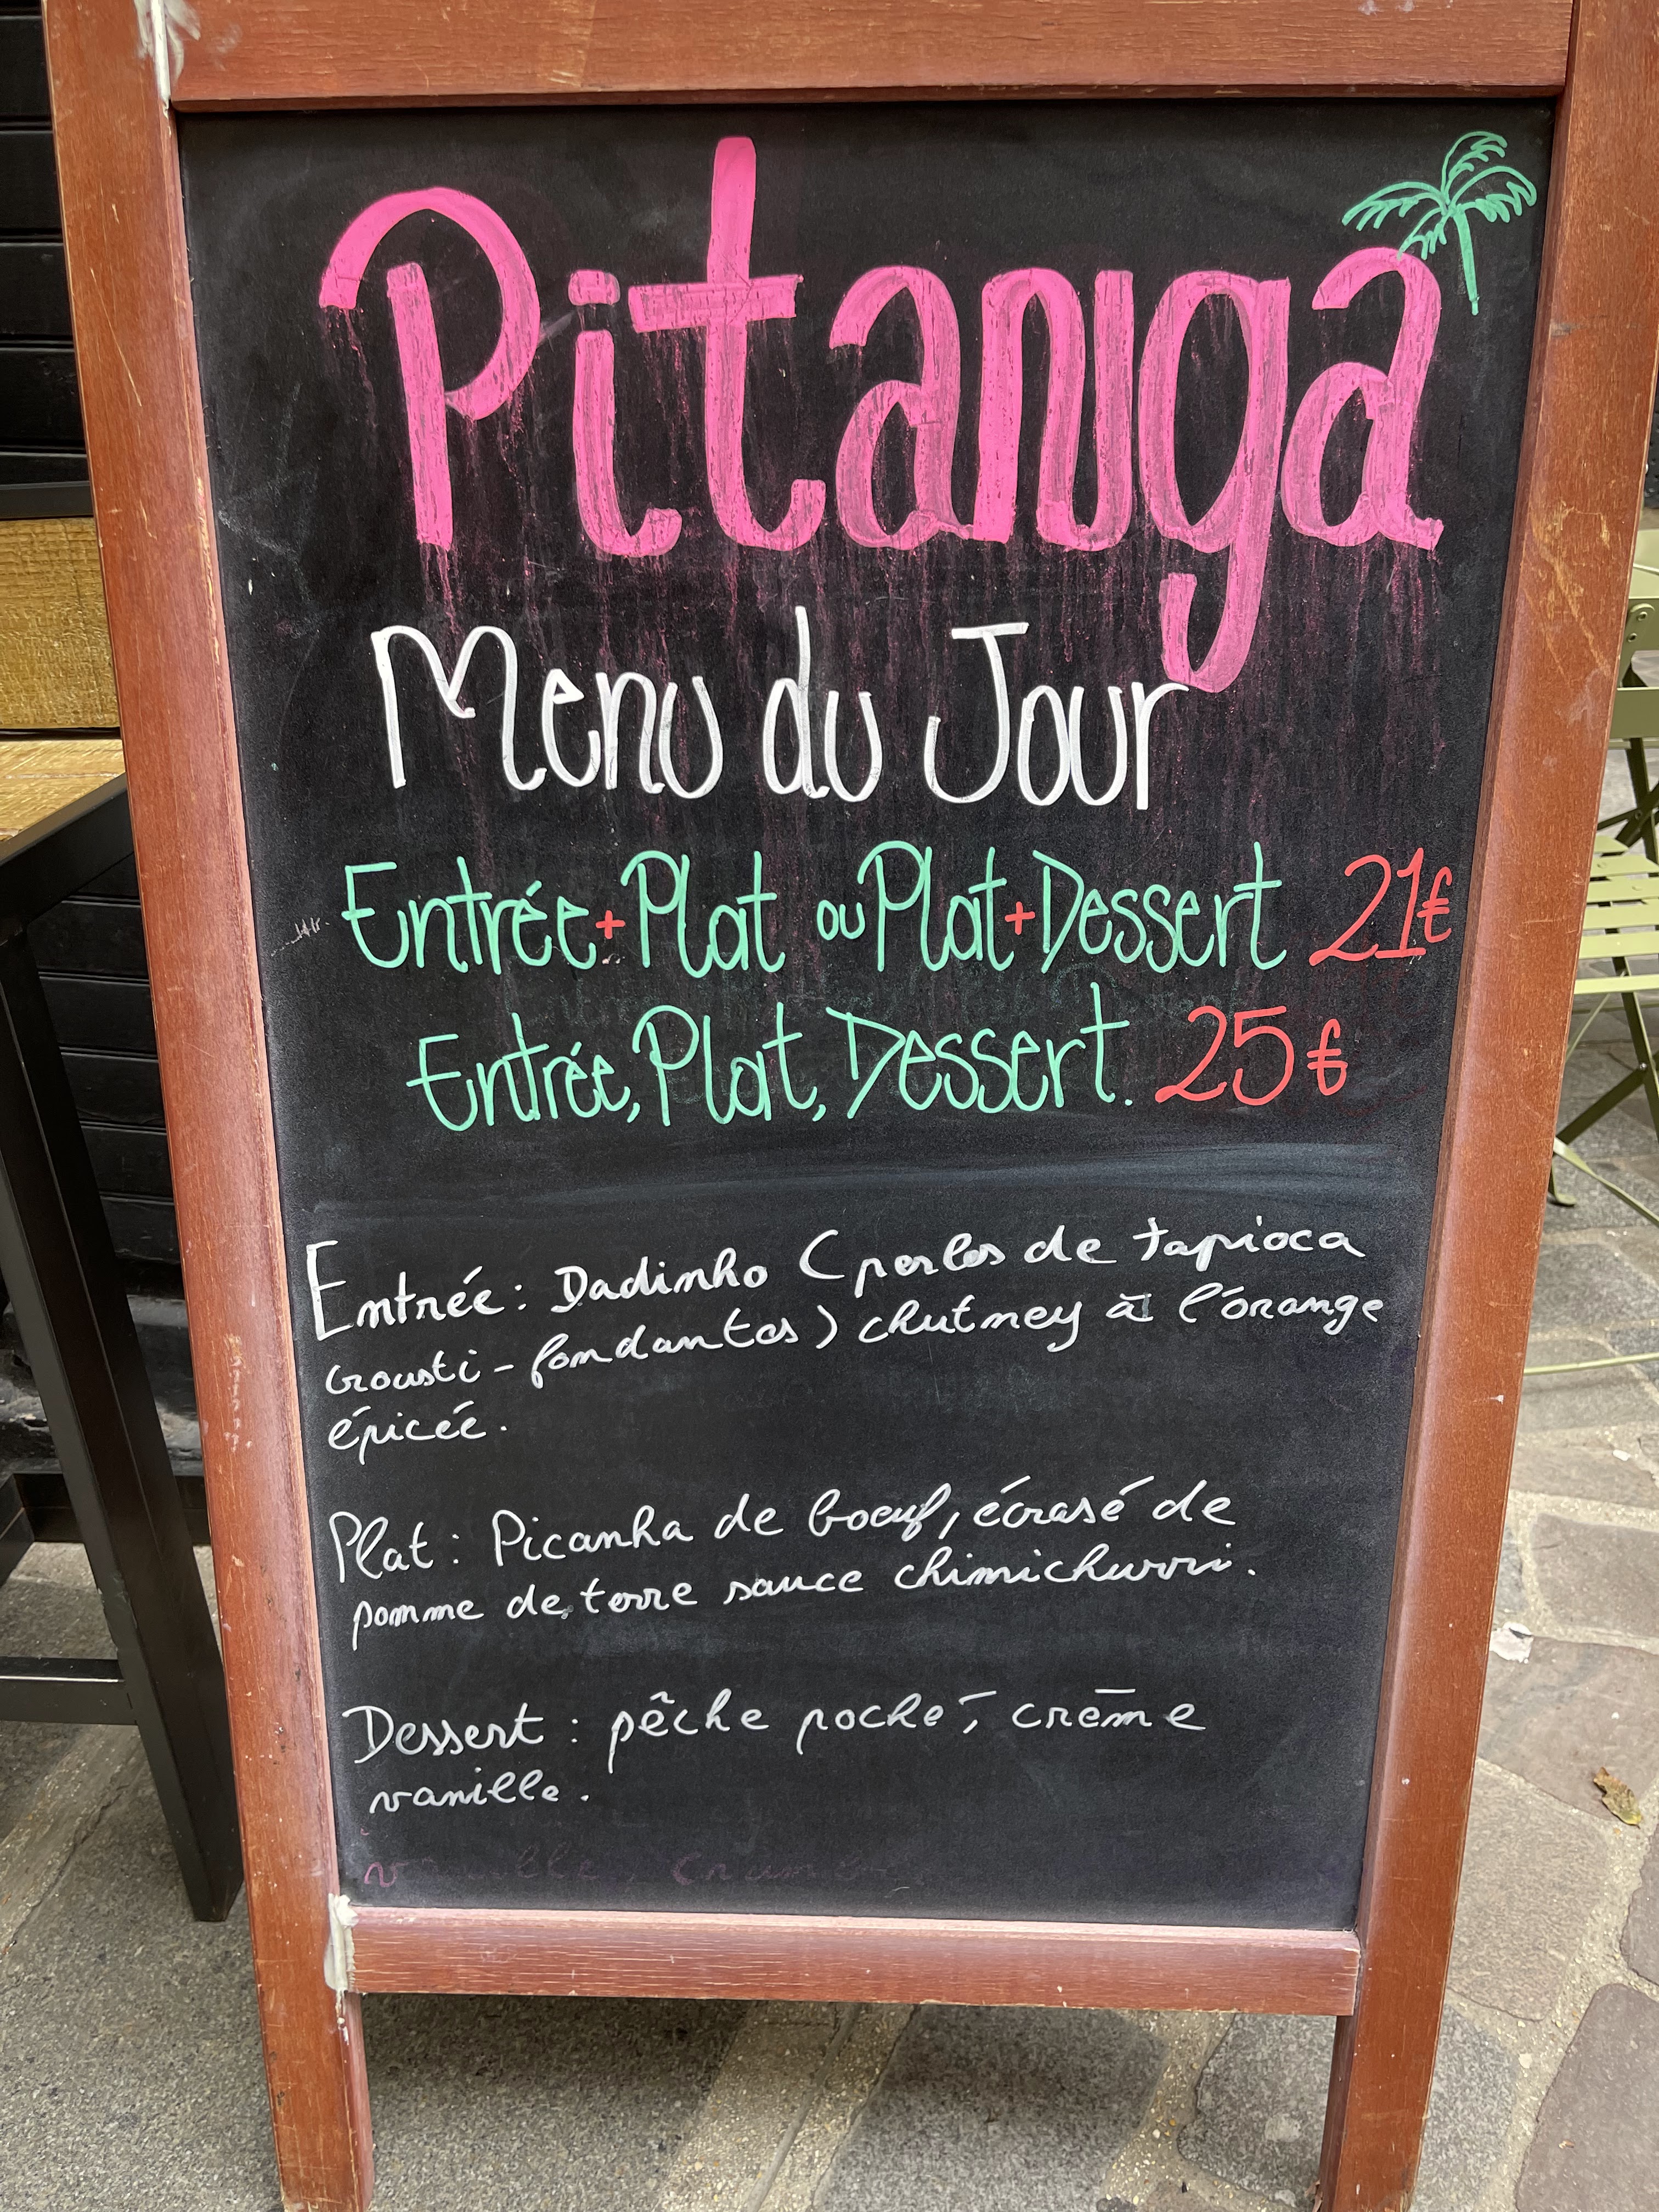 Pitanga
Menu du Jour
Entrée+Plat ou Plat+Dessert 21€
Entrée, Plat, Dessert. 25€
Entrée : Dadinho (perles de tapioca
crousti-fondantes) chutney à l'orange
épicée.
Plat : Picanha de boeuf, écrasé de
pomme de terre sauce chimichurri.
Dessert : pêche poché, crème
vanille.